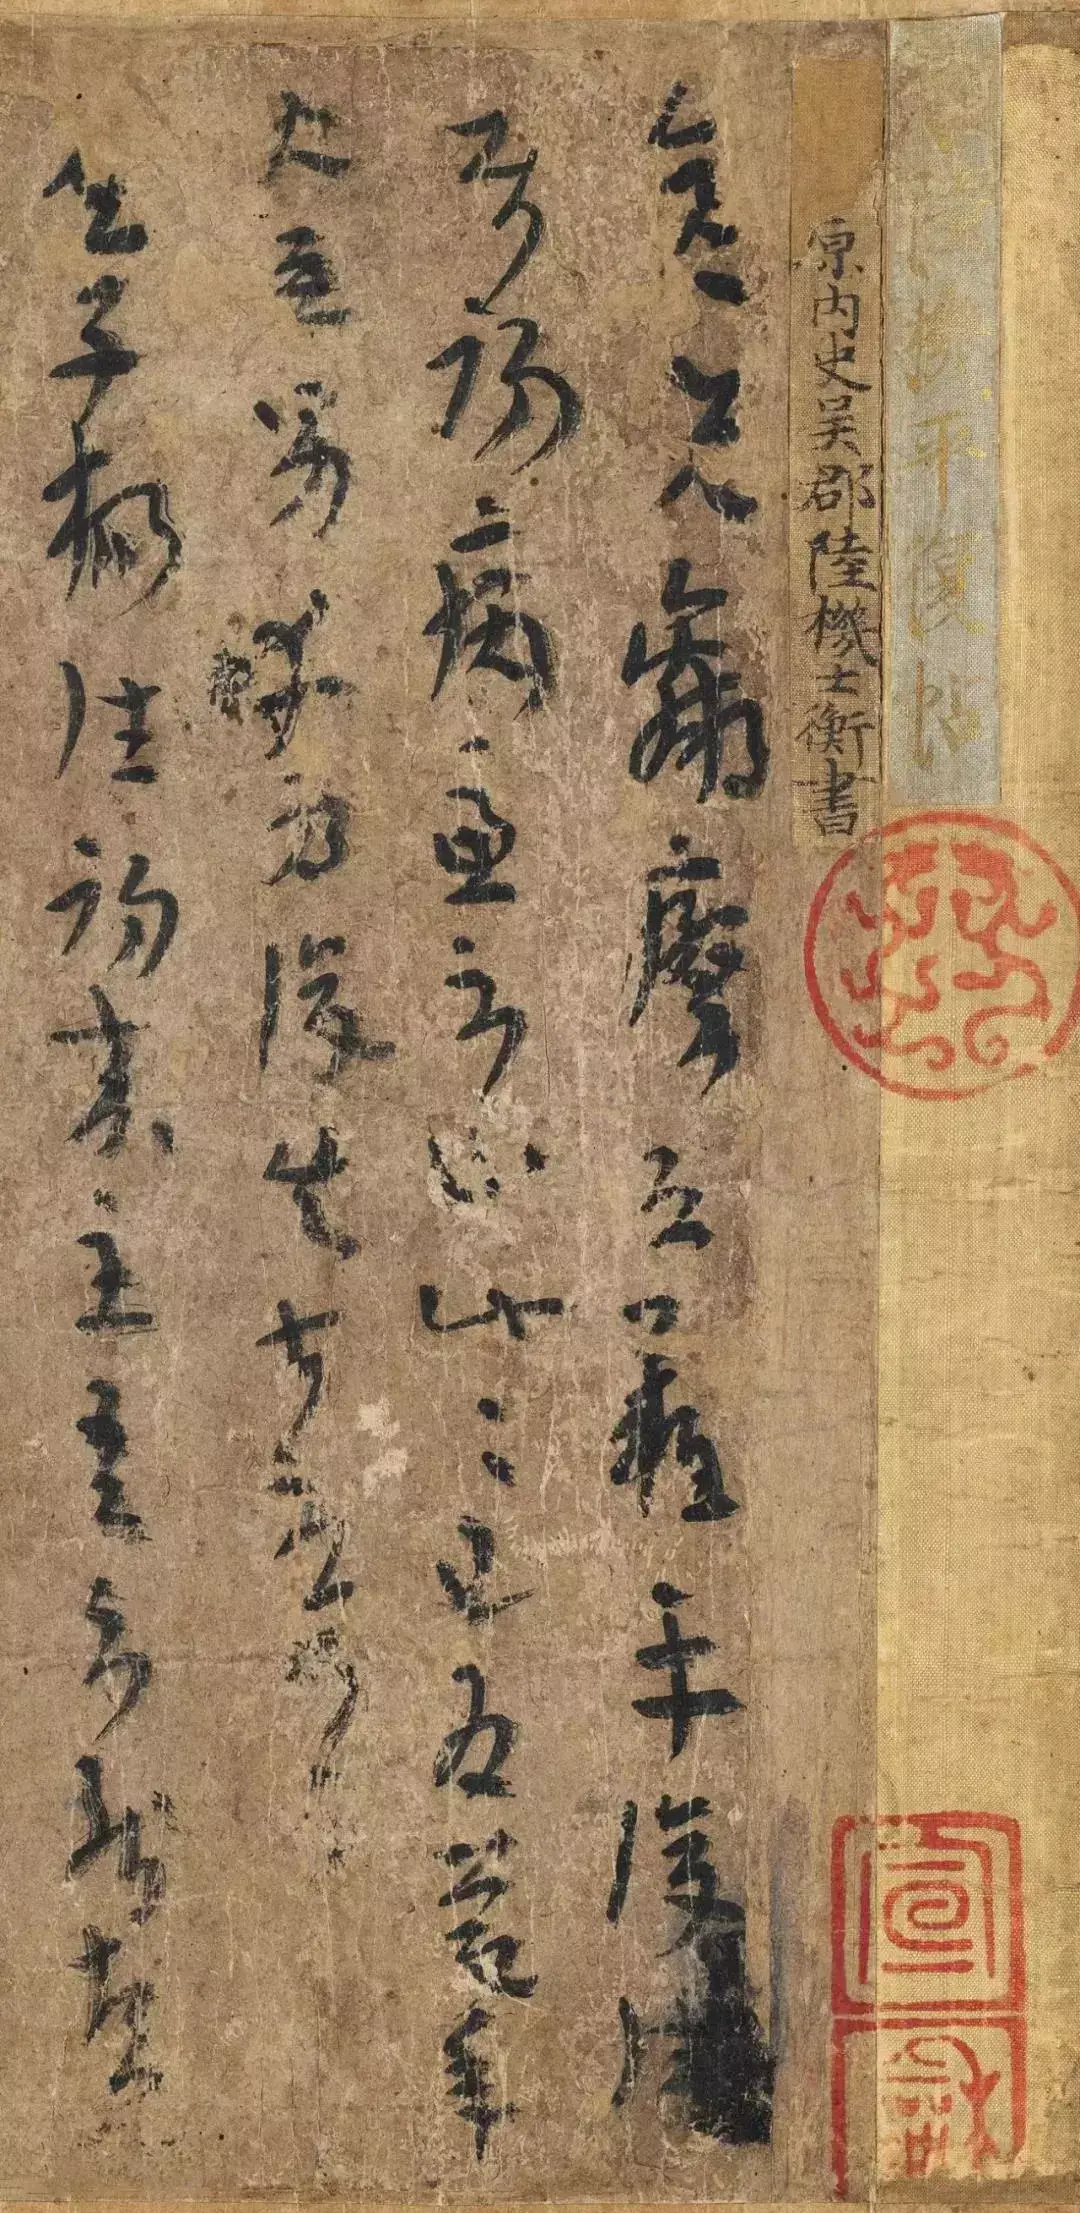 陸機平復帖
原內史吳郡陸機士衡書
彦先羸瘵恐難平復往
屬初病慮不止此〻已為慶承
使唯男幸為復失前憂耳
吳子楊往初來主吾不能盡
宣和